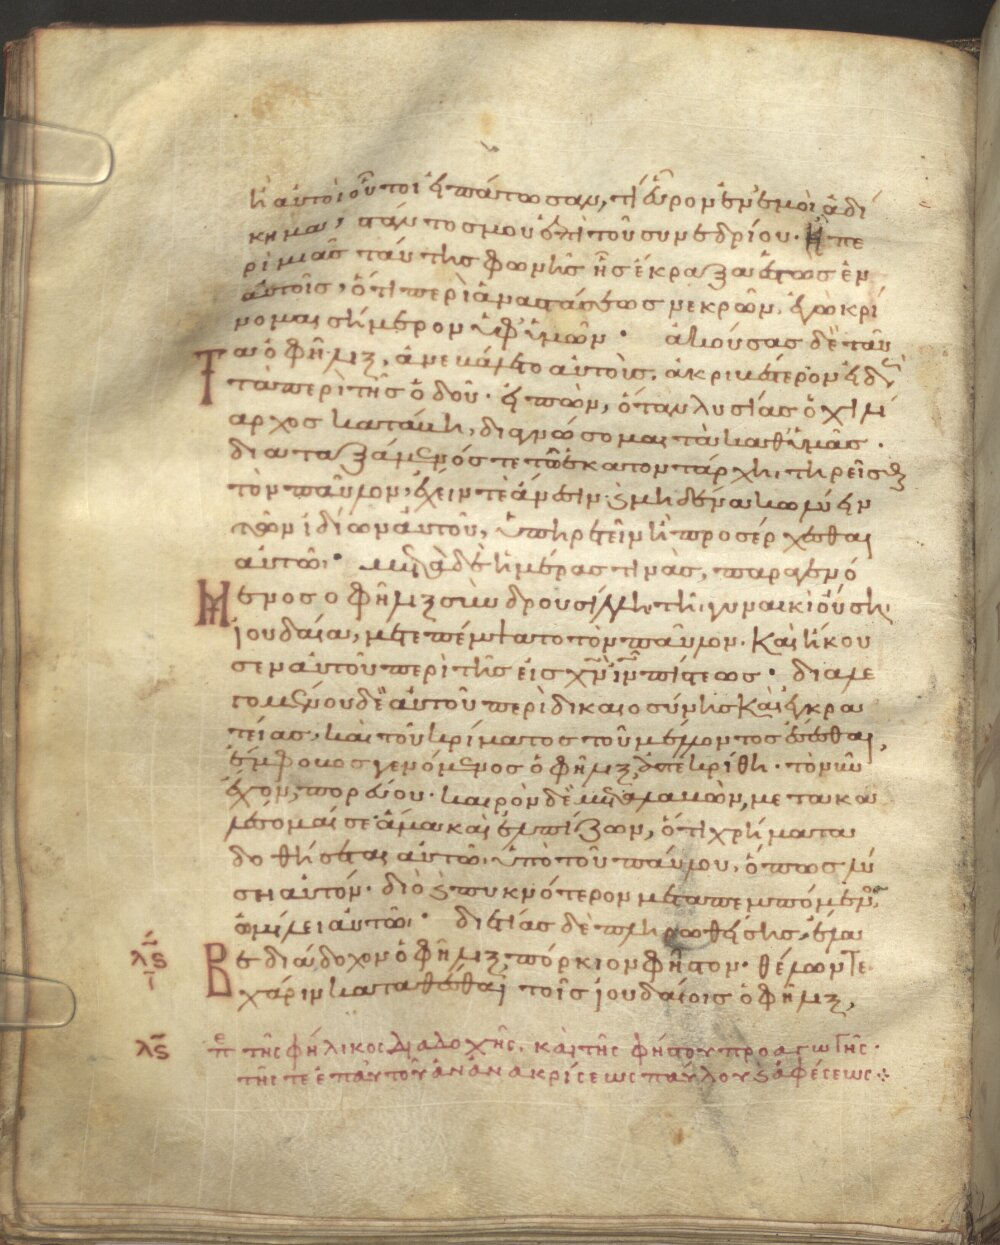 ἢ αὐτοὶ οὗτοι εἰπάτωσαν, τί εὗρον ἐν ἐμοὶ ἀδί
κημα, στάντος μου ἐπὶ τοῦ συνεδρίου· ἢ πε
ρὶ μιᾶς ταύτης φωνῆς ἧς ἔκραξα ἑστὼς ἐν
αὐτοῖς, ὅτι περὶ ἀναστάσεως νεκρῶν, ἐγὼ κρί
νομαι σήμερον ὑφ' ὑμῶν· ἀκούσας δὲ ταῦ
τα ὁ φῆλιξ, ἀνεβάλετο αὐτοὺς, ἀκριβέστερον εἰδὼς
τὰ περὶ τῆς ὁδοῦ· εἰπὼν, ὅταν λυσίας ὁ χιλί
αρχος καταβῆ, διαγνώσομαι τὰ καθ' ὑμᾶς·
διαταξάμενός τε τῶ ἑκατοντάρχη, τηρεῖσθαι
τὸν παῦλον, ἔχειν τὲ ἄνεσιν, ϗ μηδένα κωλύειν
τῶν ἰδίων αὐτοῦ, ὑπηρετεῖν ἢ προσέρχεσθαι
αὐτῶ· μετὰ δὲ ἡμέρας τινὰς, παραγενό
μενος ὁ φῆλιξ σὺν δρουσίλλη τῆ γυναικὶ οὔση
ἰουδαία, μετεπέμψατο τὸν παῦλον· καὶ ἤκου
σεν αὐτοῦ περὶ τῆς εἰς χν ιν πίστεως· διαλε
γομένου δὲ αὐτοῦ περὶ δικαιοσύνης καὶ ἐγκρα
τείας, καὶ τοῦ κρίματος τοῦ μέλλοντος ἔσεσθαι,
ἔμφοβος γενόμενος ὁ φῆλιξ, ἀπεκρίθη· τὸ νῦν
ἔχον, πορεύου· καιρὸν δὲ μεταλαβὼν, μετακα
λέσομαί σε· ἅμα καὶ ἐλπίζων, ὅτι χρήματα
δοθήσεται αὐτῶ ὑπὸ τοῦ παύλου, ὅπως λύ
ση αὐτόν· διὸ ϗ πυκνότερον μεταπεμπόμενος
ὡμίλει αὐτῶ· διετίας δὲ πληρωθείσης, ἔλα
βε διάδοχον ὁ φῆλιξ, πόρκιον φῆστον· θέλων τε
χάριν καταθέσθαι τοῖς ἰουδαίοις ὁ φῆλιξ,
λϛ
λϛ τῆς φήλικος διαδοχῆς, καὶ τῆς φήστου προαγωγῆς·
τῆς τε ἐπ' αὐτοῦ ἀνανακρίσεως παύλου ϗ ἀφέσεως